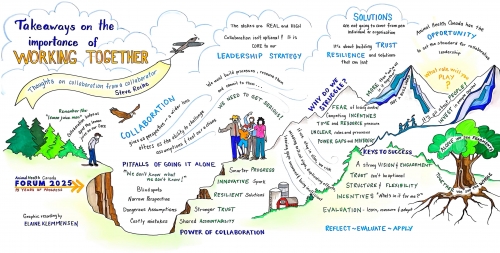 Takeaways on the
importance of
WORKING TOGETHER
Thoughts on collaboration from a collaborator
Steve Roche
Remember the
"lone juice man"
The stakes are REAL and HIGH
Collaboration isn't optional! It is
core to our
LEADERSHIP STRATEGY
SOLUTIONS
are not going to come from one
individual or organization
It's about building TRUST
RESILIENCE and solutions
that can last
Animal Health Canada has the
OPPORTUNITY
to set the standard for collaborative
leadership
What role will you
PLAY?
COLLABORATION
gives us perspective - a wider lens
offers us the ability to challenge
assumptions & find our echoes
We must build processes, resource them
and commit to them
WE NEED TO GET SERIOUS!
WHY DO WE
STRUGGLE?
FEAR of losing control
Competing INCENTIVES
TIME and RESOURCE pressures
UNCLEAR roles and processes
POWER GAPS and MISTRUST
PITFALLS OF GOING IT ALONE
"We don't know what
we don't know!"
Blindspots
Narrow Perspective
Dangerous Assumptions
Costly mistakes
Smarter PROGRESS
INNOVATIVE Spark
RESILIENT Solutions
Stronger TRUST
Shared ACCOUNTABILITY
POWER OF COLLABORATION
KEYS TO SUCCESS
A Strong VISION & ENGAGEMENT
TRUST isn't transactional
STRUCTURE & FLEXIBILITY
INCENTIVES "What's in it for me?"
EVALUATION - learn, measure & adapt
REFLECT~EVALUATE~APPLY
Animal Health Canada
FORUM 2025
15 YEARS OF PROGRESS
Graphic recording by
ELAINE KLEMMENSEN